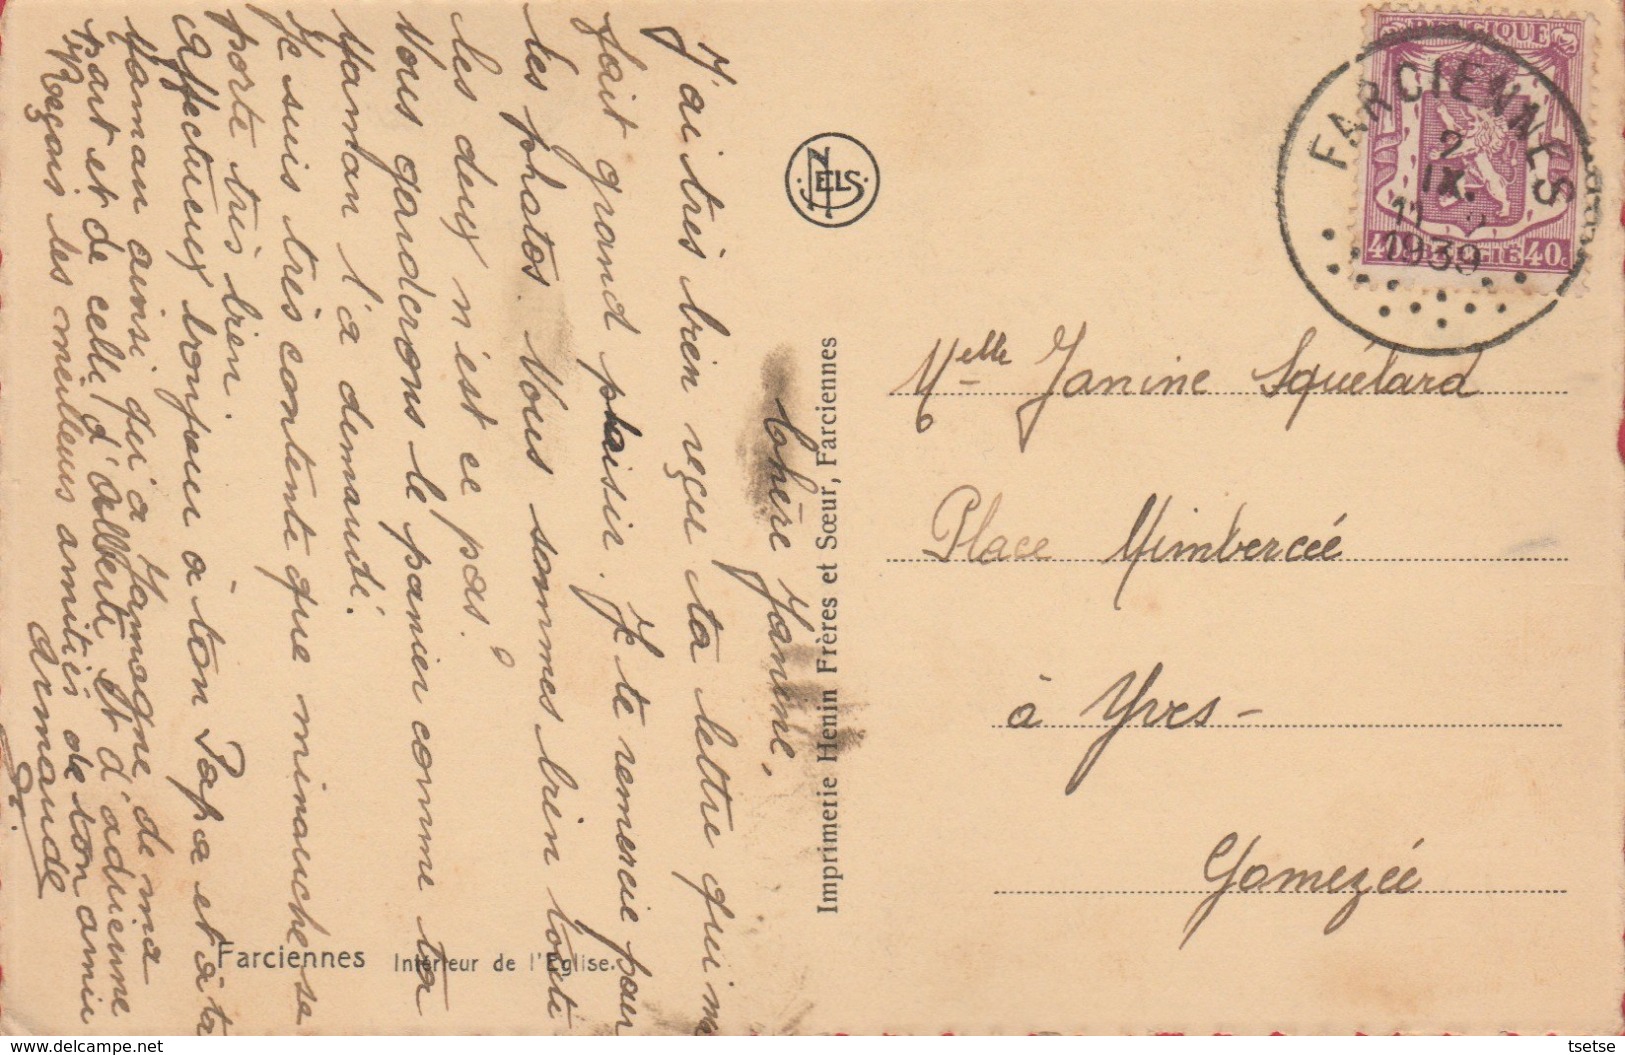 Chère Janine,
J'ai très bien reçu ta lettre qui m'a
fait grand plaisir. Je te remercie pour
les photos. Vous sommes bien toute
les deux n'est ce pas?
Vous garderons le panier comme ta
Maman l'a demandé.
Je suis très contente que minouche se
porte très bien.
Affectueux bonjour à ton Papa et à ta
Maman ainsi qui à Jamogne, de ma
part et de celle d'Albert et d'adrienne
Reçois les meilleurs amitiés de ton amie
Armande
Farciennes Intérieur de l'Eglise.
Imprimerie Henin Frères et Sœur, Farciennes
NELS
BELGIQUE
40 BELGIE 40c
FARCIENNES
2
IX
11
1939
Melle Janine Squélard
Place Mimbercée
à Yves-
Gomezée
tsetse @ delcampe.net